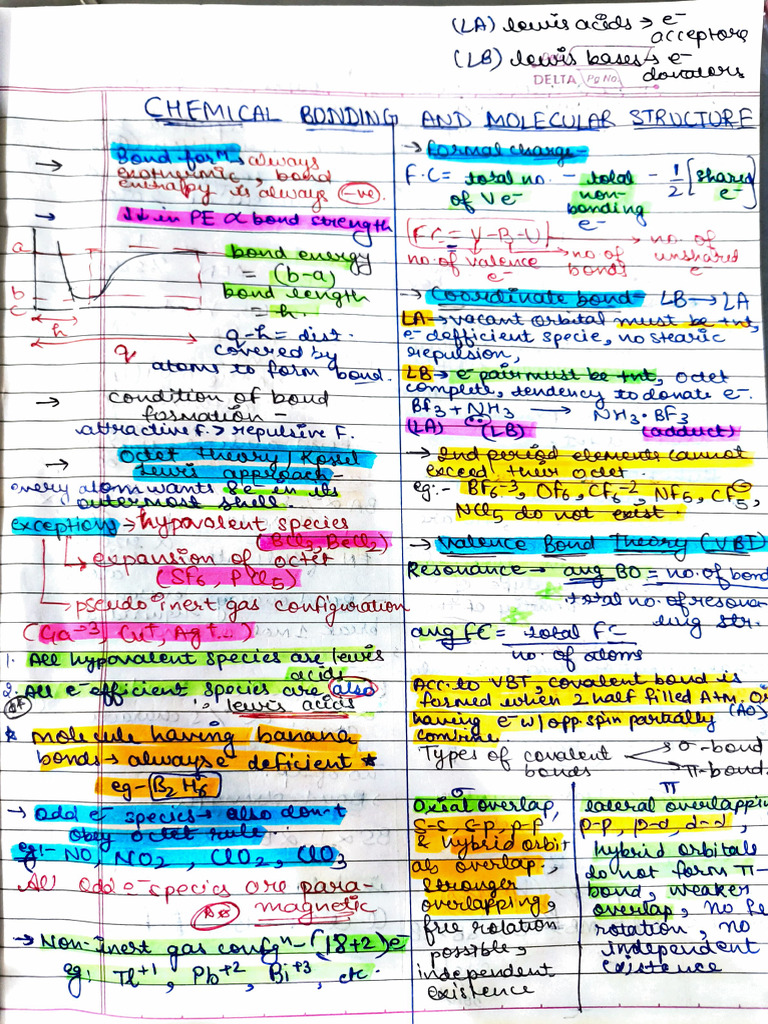 (LA) lewis acids → e⁻
acceptors
(LB) lewis bases → e⁻
donators
DELTA Pg No.
CHEMICAL BONDING AND MOLECULAR STRUCTURE
→ Bond formⁿ → always
exothermic, bond
enthalpy is always -ve.
→ ↓↓ in PE ∝ bond strength
a
b
c
h
q
bond energy
= (b-a)
bond length
= h.
q-h = dist.
covered by
atoms to form bond.
→ condition of bond
formation -
attractive F. > repulsive F.
→ Octet theory / Kossel
Lewis approach -
every atom wants 8e⁻ in its
outermost shell.
exceptions → hypovalent species
(BCl₃, BeCl₂)
→ expansion of octet
(SF₆, PCl₅)
→ pseudo inert gas configuration
(Ga⁺³, Cu⁺, Ag⁺...)
1. All hypovalent species are lewis
acids
2. All e⁻ efficient species are also
lewis acids
* molecule having banana
bonds → always e⁻ deficient *
eg- B₂H₆
→ Odd e⁻ species → also don't
obey octet rule.
eg:- NO, NO₂, ClO₂, ClO₃
All odd e⁻ species are para-
magnetic
→ Non-inert gas confgⁿ - (18+2)e⁻
eg: Tl⁺¹, Pb⁺², Bi⁺³, etc.
→ Formal charge -
F.C = total no. of Ve⁻ - total non-bonding e⁻ - 1/2 [shared e⁻]
FC = V-B-U → no. of
unshared
e⁻
no. of valence
e⁻
no of
bonds
→ Coordinate bond - LB → LA
LA → vacant orbital must be +nt,
e⁻ defficient specie, no stearic
repulsion,
LB → e⁻ pair must be +nt, octet
complete, tendency to donate e⁻.
BF₃ + NH₃ → NH₃·BF₃
(LA) (LB) (adduct)
→ 2nd period elements cannot
exceed their octet.
eg:- BF₆⁻³, OF₆, CF₆⁻², NF₅, CF₅⁻,
NCl₅ do not exist.
→ Valence Bond Theory (VBT)
Resonance → avg BO = no. of bond
total no. of resona-
ting str.
avg FC = total FC
no. of atoms
Acc. to VBT, covalent bond is
formed when 2 half filled Atm. O
having e⁻ w/ opp. spin partially (AO)
combine.
Types of covalent
bonds
σ-bond
π-bond
σ
Axial overlap,
s-s, s-p, p-p
& hybrid orbit
als overlap.,
stronger
overlapping,
free rotation
possible,
independent
existence
π
lateral overlappin
p-p, p-d, d-d,
hybrid orbitals
do not form π-
bond, weaker
overlap, no
rotation, no
independent
existence